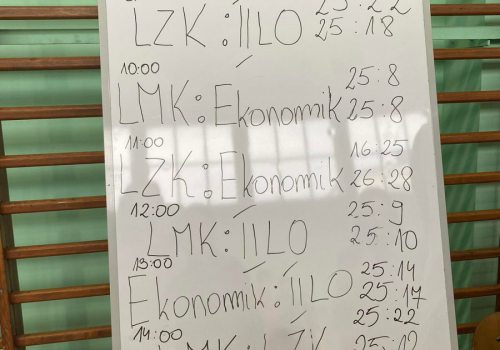 25:22
LZK : II LO 25:18
10:00
LMK : Ekonomik 25:8
25:8
11:00
LZK : Ekonomik 16:25
26:28
12:00
LMK : II LO 25:9
25:10
13:00
Ekonomik : II LO 25:14
25:17
14:00
25:22
LMK : LZK 25:12